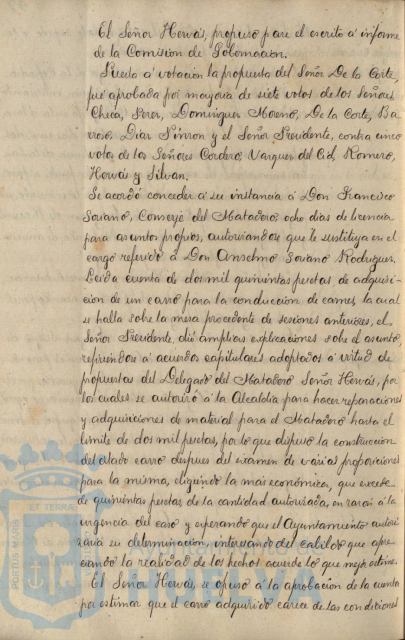 El Señor Hervás, propuso pase el escrito a informe
de la Comision de Gobernacion.
Puesta a votacion la propuesta del Señor De la Corte,
fué aprobada por mayoria de siete votos de los Señores
Checa, Perer, Dominguez Moreno, De la Corte, Ba
rroso, Diaz Pinzon y el Señor Presidente, contra cinco
votos de los Señores Cordero, Vazquez del Cid, Romero,
Hervás y Silvan.
Se acordó conceder a su instancia a Don Francisco
Soriano, Conserje del Matadero ocho dias de licencia
para asuntos propios, autorizandose que le sustituya en el
cargo referido a Don Anselmo Soriano Rodriguez.
Leida cuenta de dos mil quinientas pesetas de adquisi-
cion de un carro para la conduccion de carnes, la cual
se halla sobre la mesa procedente de sesiones anteriores, el
Señor Presidente, dió amplias explicaciones sobre el asunto,
refiriendose a acuerdos capitulares adoptados a virtud de
propuestas del Delegado del Matadero Señor Hervás, por
los cuales se autorizó a la Alcaldia para hacer reparaciones
y adquisiciones de material para el Matadero hasta el
limite de dos mil pesetas, por lo que dispuso la construccion
del citado carro despues del examen de varias proposiciones
para la misma, eligiendo la mas económica, que excede
de quinientas pesetas de la cantidad autorizada, en razon a la
urgencia del caso y esperando que el Ayuntamiento autori
zaria su determinacion, interesando del cabildo que apre
ciando la realidad de los hechos acuerde lo que mejor estime.
El Señor Hervás, se opuso a la aprobacion de la cuenta
por estimar que el carro adquirido carece de las condiciones
PORTUS MARIS
ET TERRAE
HUELVA